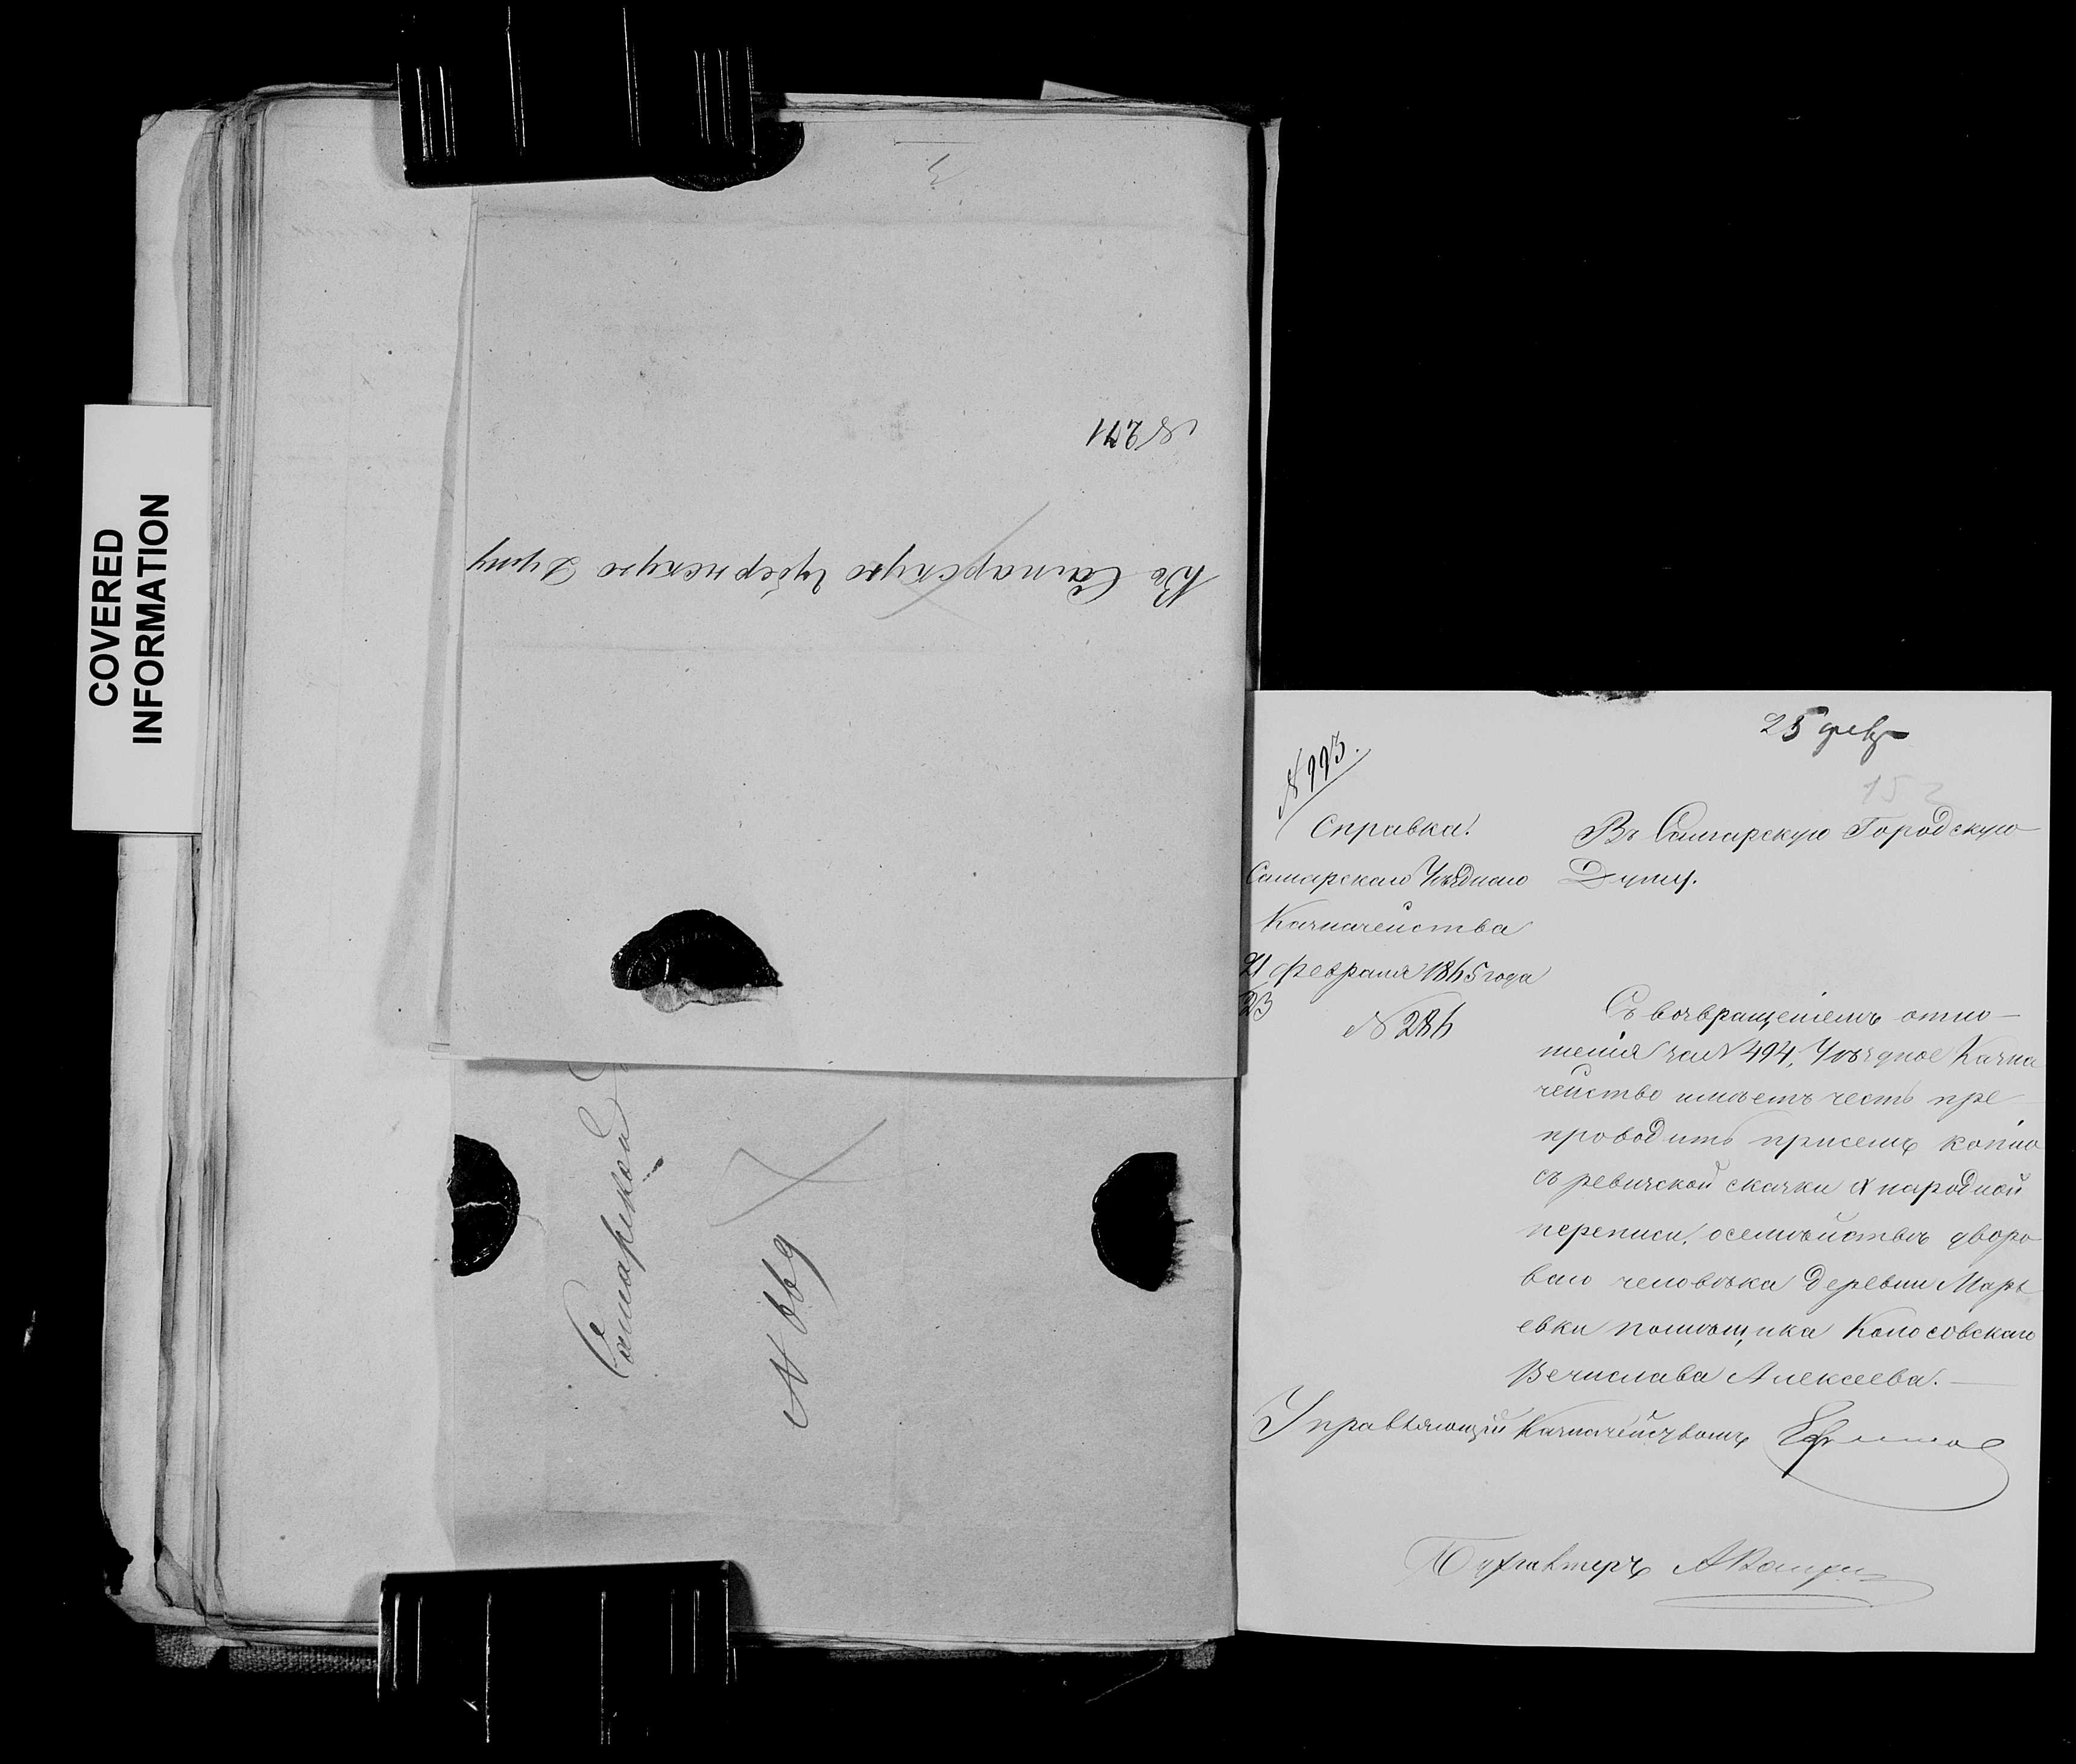 COVERED
INFORMATION
3
№ 271
Въ Самарскую Губернскую Думу
Самарской
№ 669
25 февр
152
№ 993.
Справка.
Самарскаго Уѣзднаго
Казначейства
21 февраля 1865 года
23
№ 286
Въ Самарскую Городскую
Думу.
Съ возвращеніемъ отно-
шенія за № 494, Уѣздное Казна
чейство имѣетъ честь пре
проводить присемъ копію
съ ревизской скажки X народной
переписи, осемѣйствѣ дворо
ваго человѣка деревни Марь
евки помѣщика Колосовскаго
Вечислава Алексеева.
Управляющій Казначействомъ
Бухгалтеръ